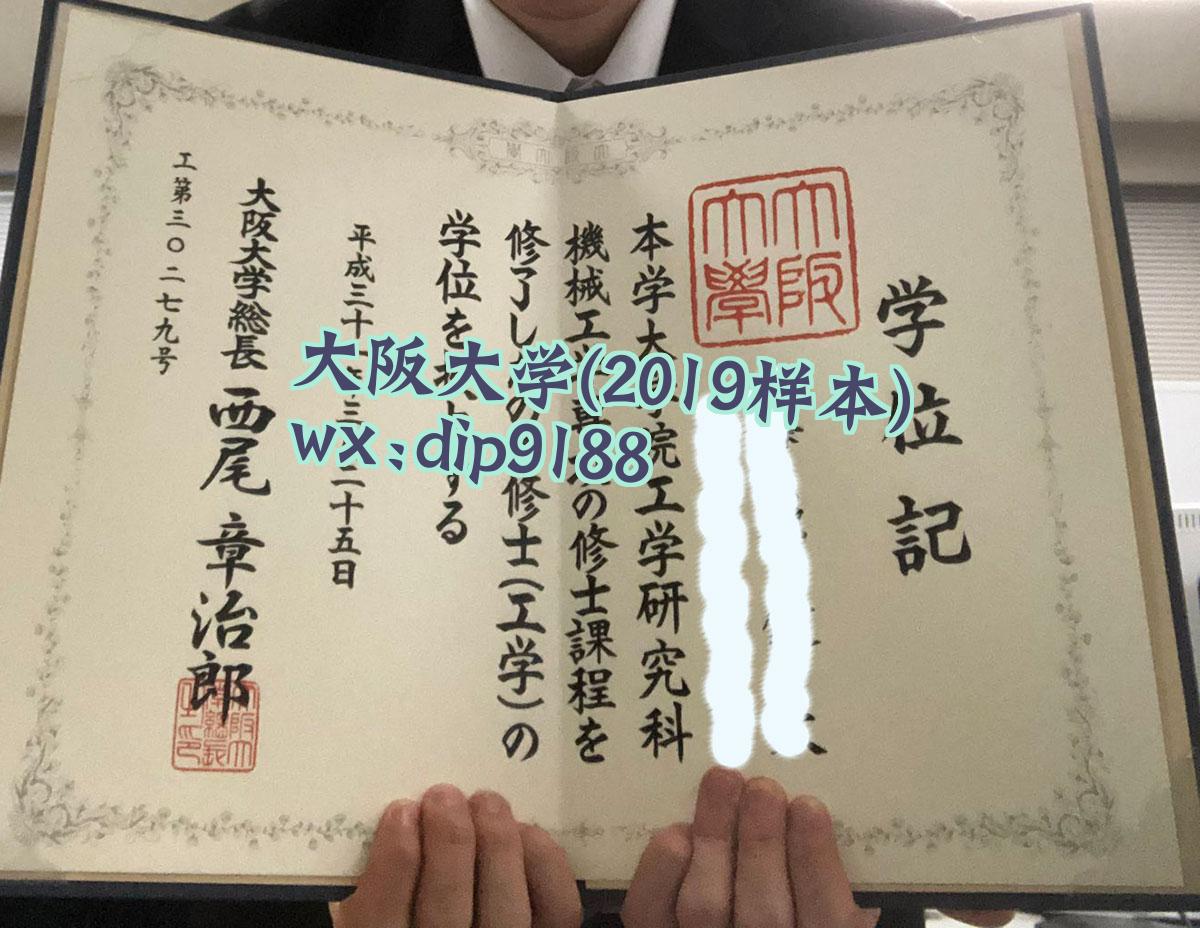 学位記
大阪大學
本学大院工学研究科
機械工の修士課程を
修了しの修士(工学)の
学位をする
平成三十三二十五日
大阪大学総長 西尾章治郎
工第三〇二七九号
大阪大学(2019样本)
wx:dip9188